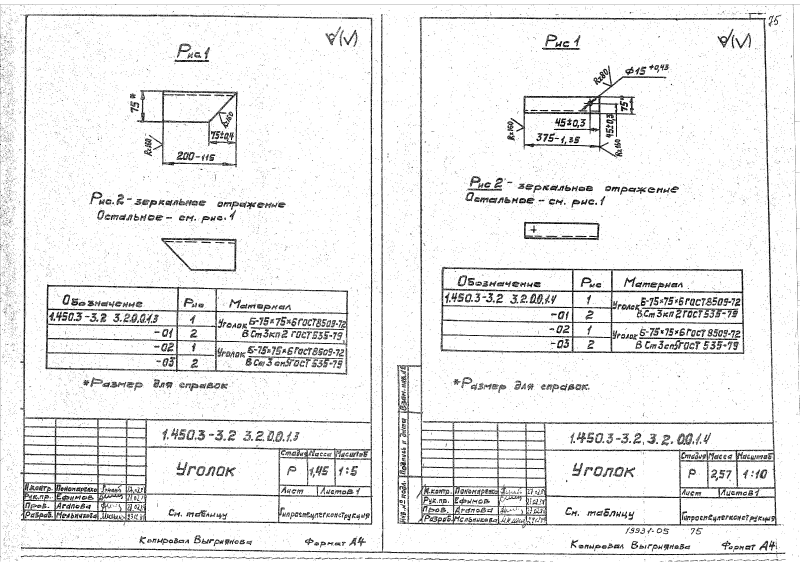 Рис.1
75*
75±0,4
200-115
Rz160
Рис.2 - зеркальное отражение
Остальное - см. рис.1
Обозначение Рис Материал
1.450.3-3.2 3.2.0.0.1.3 1 Уголок Б-75×75×6 ГОСТ 8509-72
-01 2 В Ст3кп2 ГОСТ 535-79
-02 1 Уголок Б-75×75×6 ГОСТ 8509-72
-03 2 В Ст3сп5 ГОСТ 535-79
*Размер для справок
1.450.3-3.2 3.2.0.0.1.3
Уголок
Стадия Масса Масштаб
Р 1,45 1:5
Лист Листов 1
Н.контр. Пономаренко
Рук.пр. Ефимов
Пров. Агапова
Разраб. Мельникова
См. таблицу
Гипроспецлегконструкция
Копировал Выгриянова Формат А4
75
Рис 1
Rz80
Ф15+0,43
75*
45±0,3
45±0,3
375-1,35
Rz160
Rz160
Рис 2 - зеркальное отражение
Остальное - см. рис.1
Обозначение Рис Материал
1.450.3-3.2 3.2.0.0.1.4 1 Уголок Б-75×75×6 ГОСТ 8509-72
-01 2 В Ст3кп2 ГОСТ 535-79
-02 1 Уголок Б-75×75×6 ГОСТ 8509-72
-03 2 В Ст3сп5 ГОСТ 535-79
*Размер для справок.
Взам. инв.№
Подпись и дата
Инв.№ подл.
1.450.3-3.2. 3.2.0.0.1.4
Уголок
Стадия Масса Масштаб
Р 2,57 1:10
Лист Листов 1
Н.контр. Пономаренко
Рук.пр. Ефимов
Пров. Агапова
Разраб. Мельникова
См. таблицу
Гипроспецлегконструкция
19931-05 75
Копировал Выгриянова Формат А4